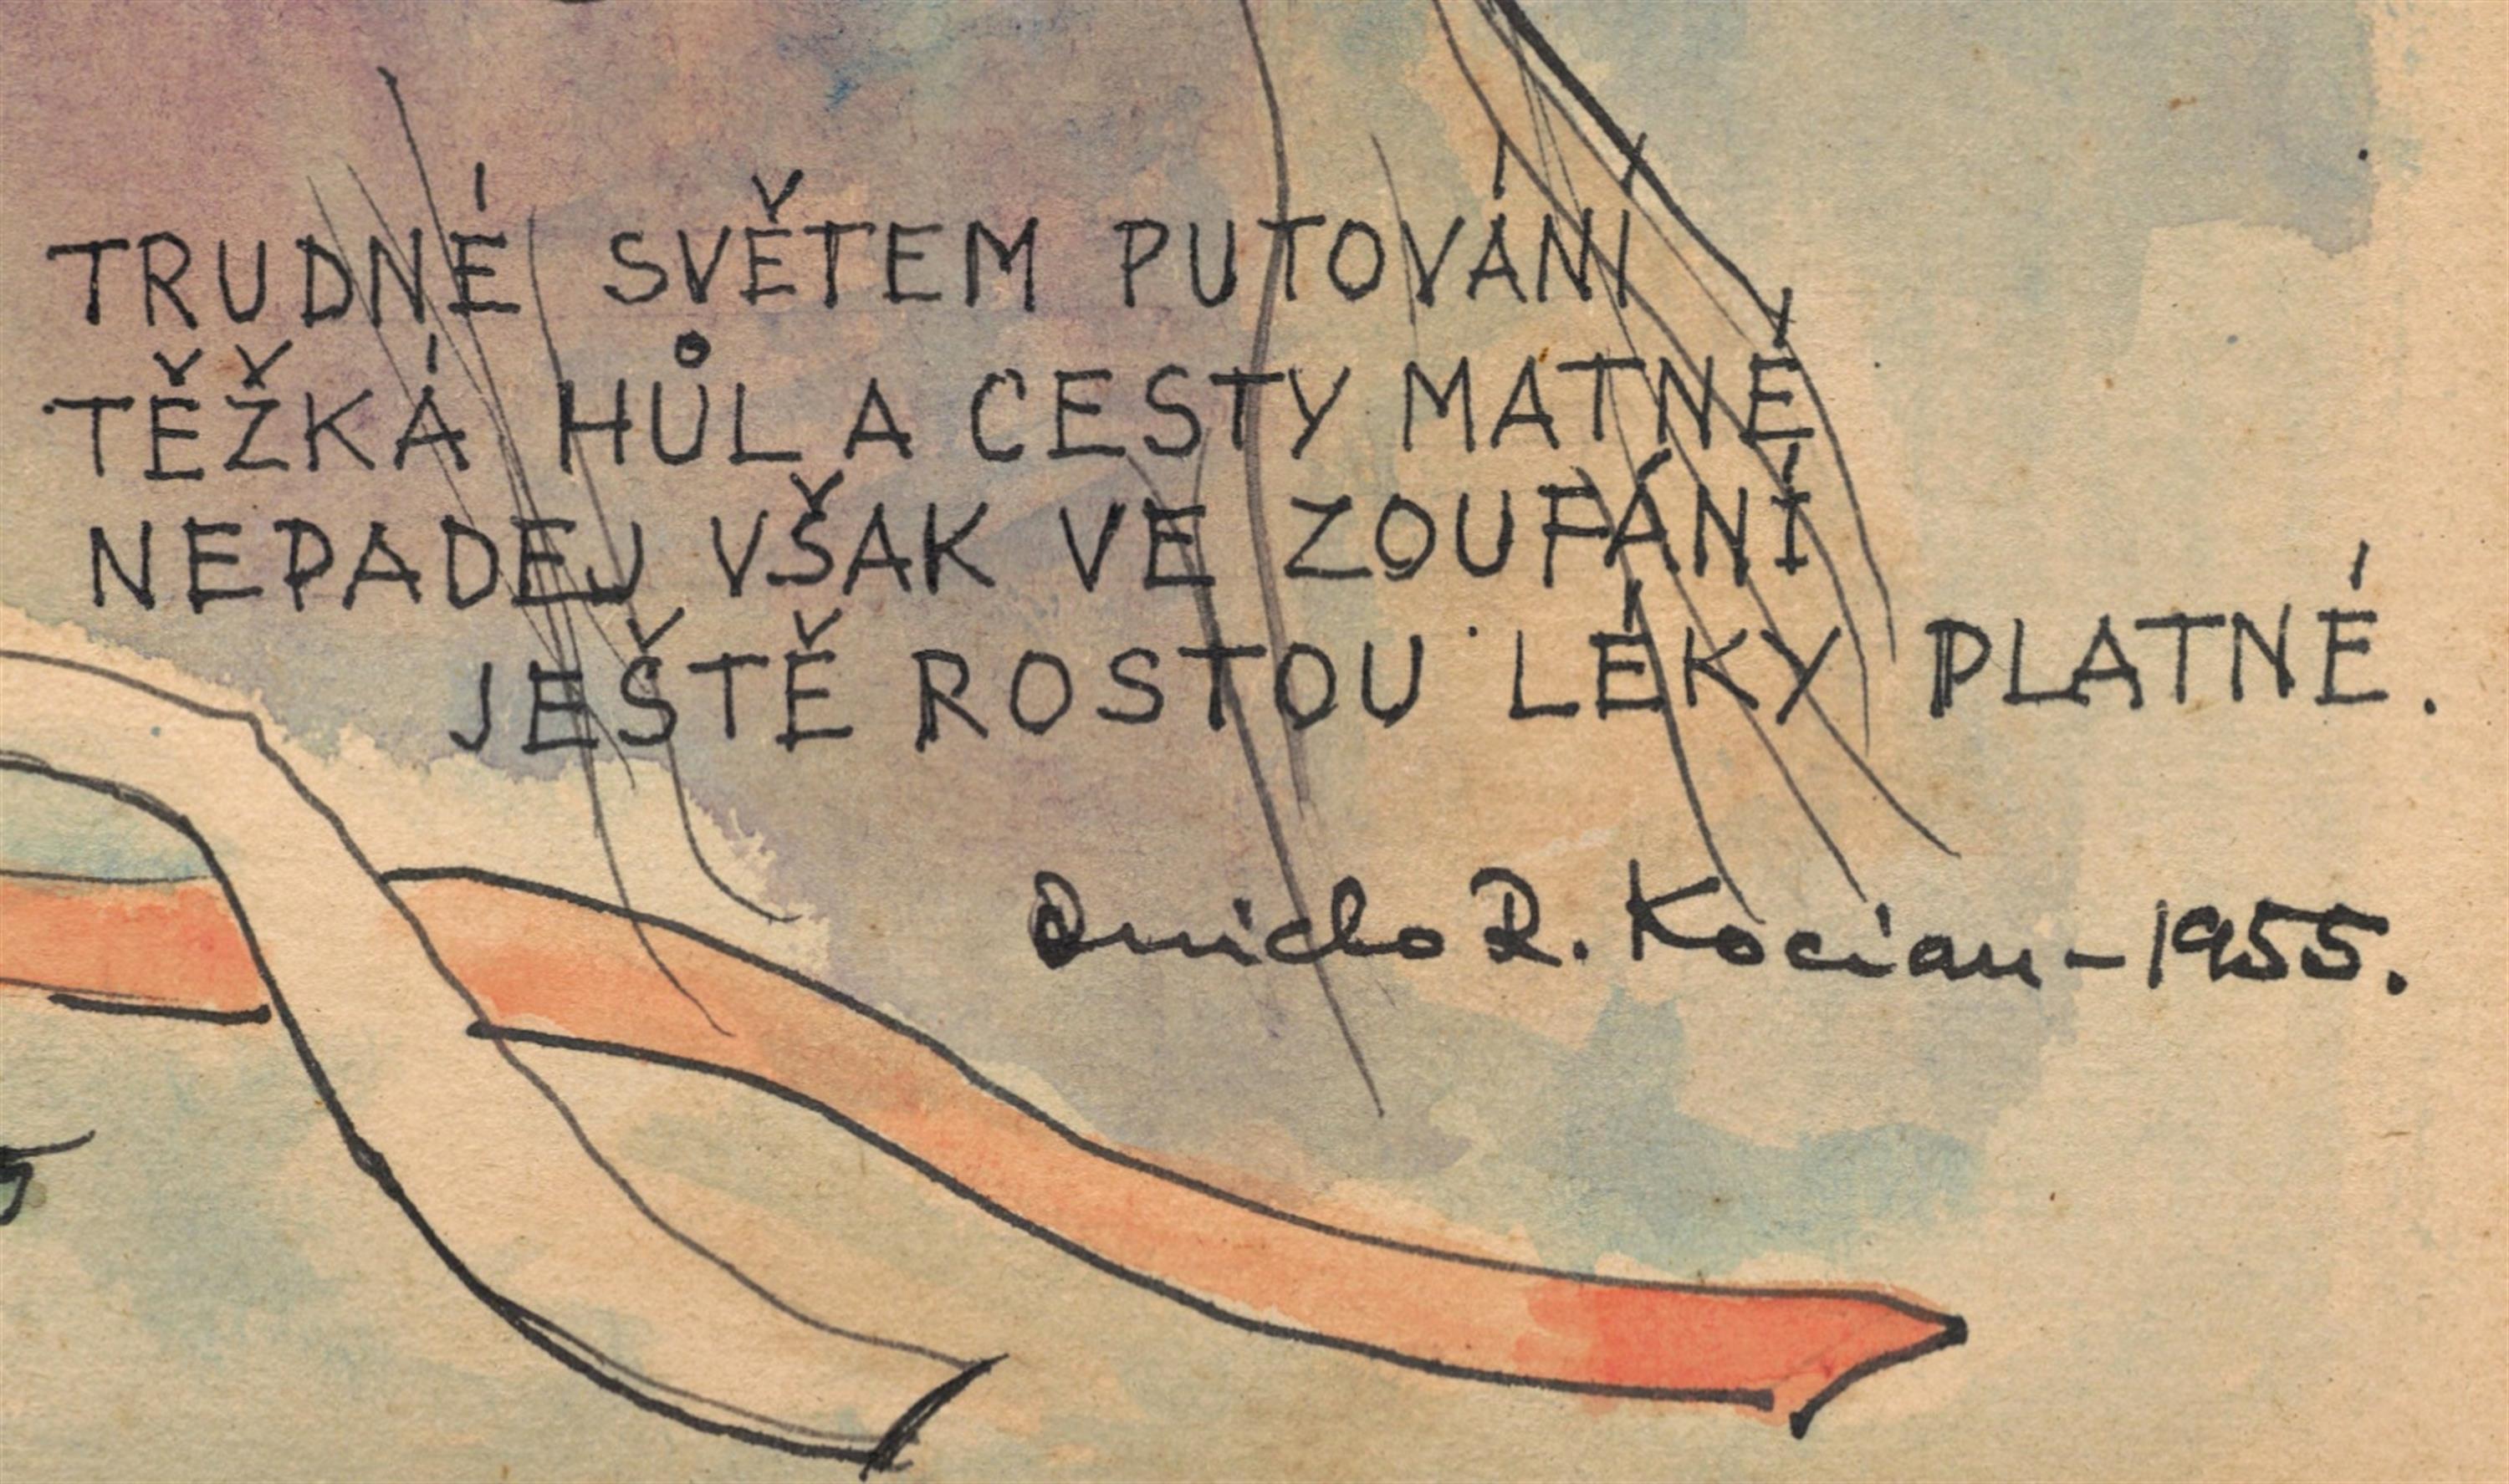 TRUDNÉ SVĚTEM PUTOVÁNÍ
TĚŽKÁ HŮL A CESTY MATNÉ
NEPADEJ VŠAK VE ZOUFÁNÍ
JEŠTĚ ROSTOU LÉKY PLATNÉ.
Quido R. Kocian – 1955.